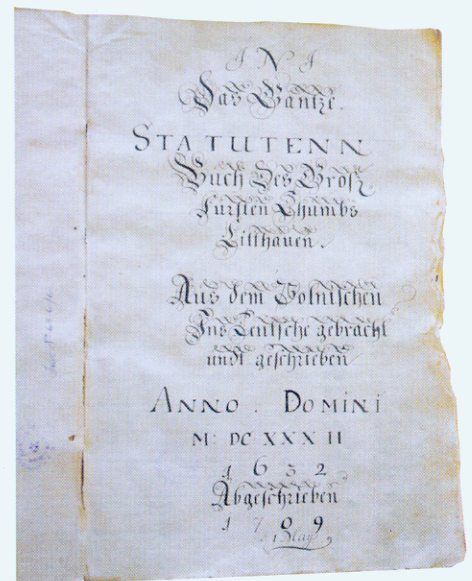 I N J
Das Gantze.
STATUTENN
Buch Des Groß
Fürsten Thumbs
Litthauen.
Aus dem Polnischen
Ins Teutsche gebracht
undt geschrieben
ANNO . DOMINI
M: DC XXX II
1 6 3 2
Abgeschrieben
1 7 0 9